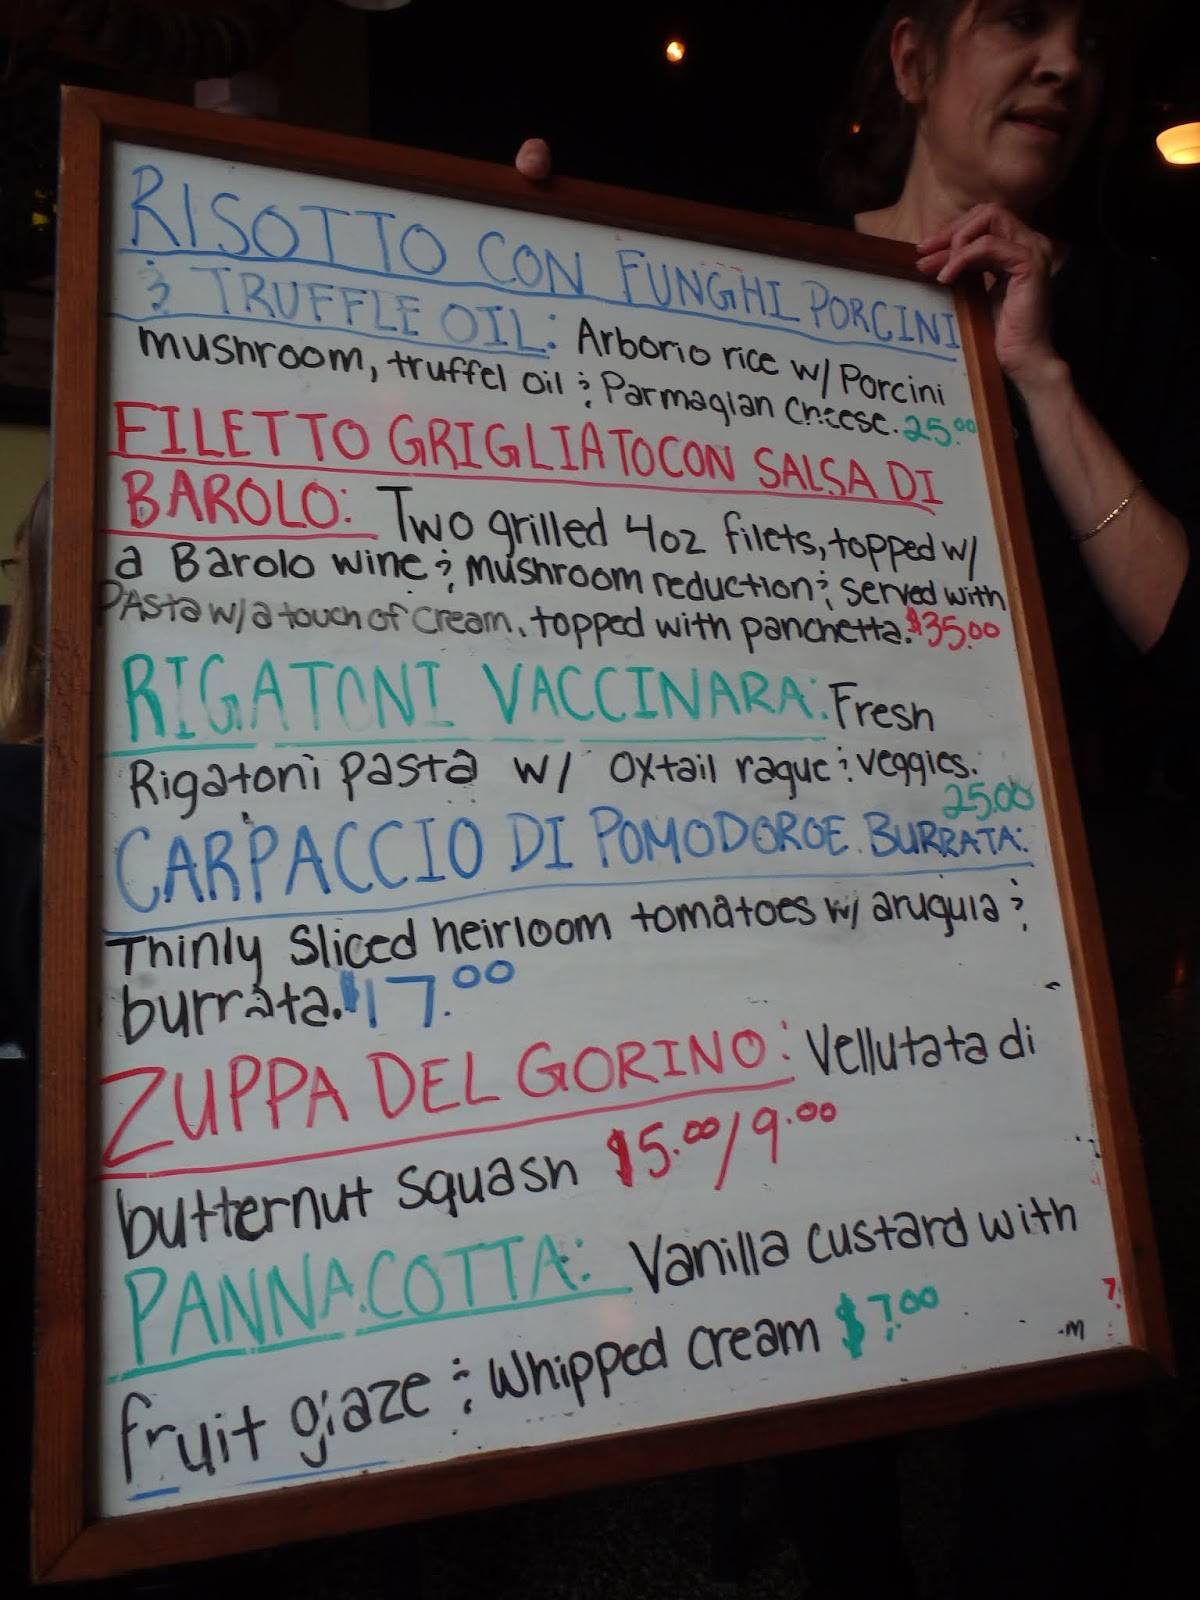 RISOTTO CON FUNGHI PORCINI
& TRUFFLE OIL: Arborio rice w/ Porcini
mushroom, truffel oil & Parmagian Cheese. 25.00
FILETTO GRIGLIATO CON SALSA DI
BAROLO: Two grilled 4oz filets, topped w/
a Barolo wine & mushroom reduction & served with
Pasta w/ a touch of cream, topped with panchetta. $35.00
RIGATONI VACCINARA: Fresh
Rigatoni pasta w/ oxtail rague & veggies.
25.00
CARPACCIO DI POMODORO E BURRATA:
Thinly sliced heirloom tomatoes w/ arugula &
burrata. $17.00
ZUPPA DEL GORINO: Vellutata di
butternut squash $5.00/9.00
PANNA COTTA: Vanilla custard with
fruit glaze & whipped cream $7.00